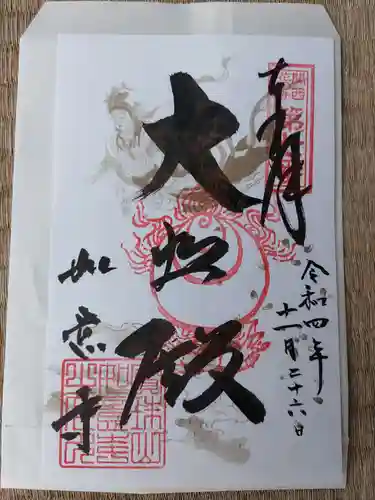 奉拝
令和四年
十一月二十六日
大悲殿
如意寺